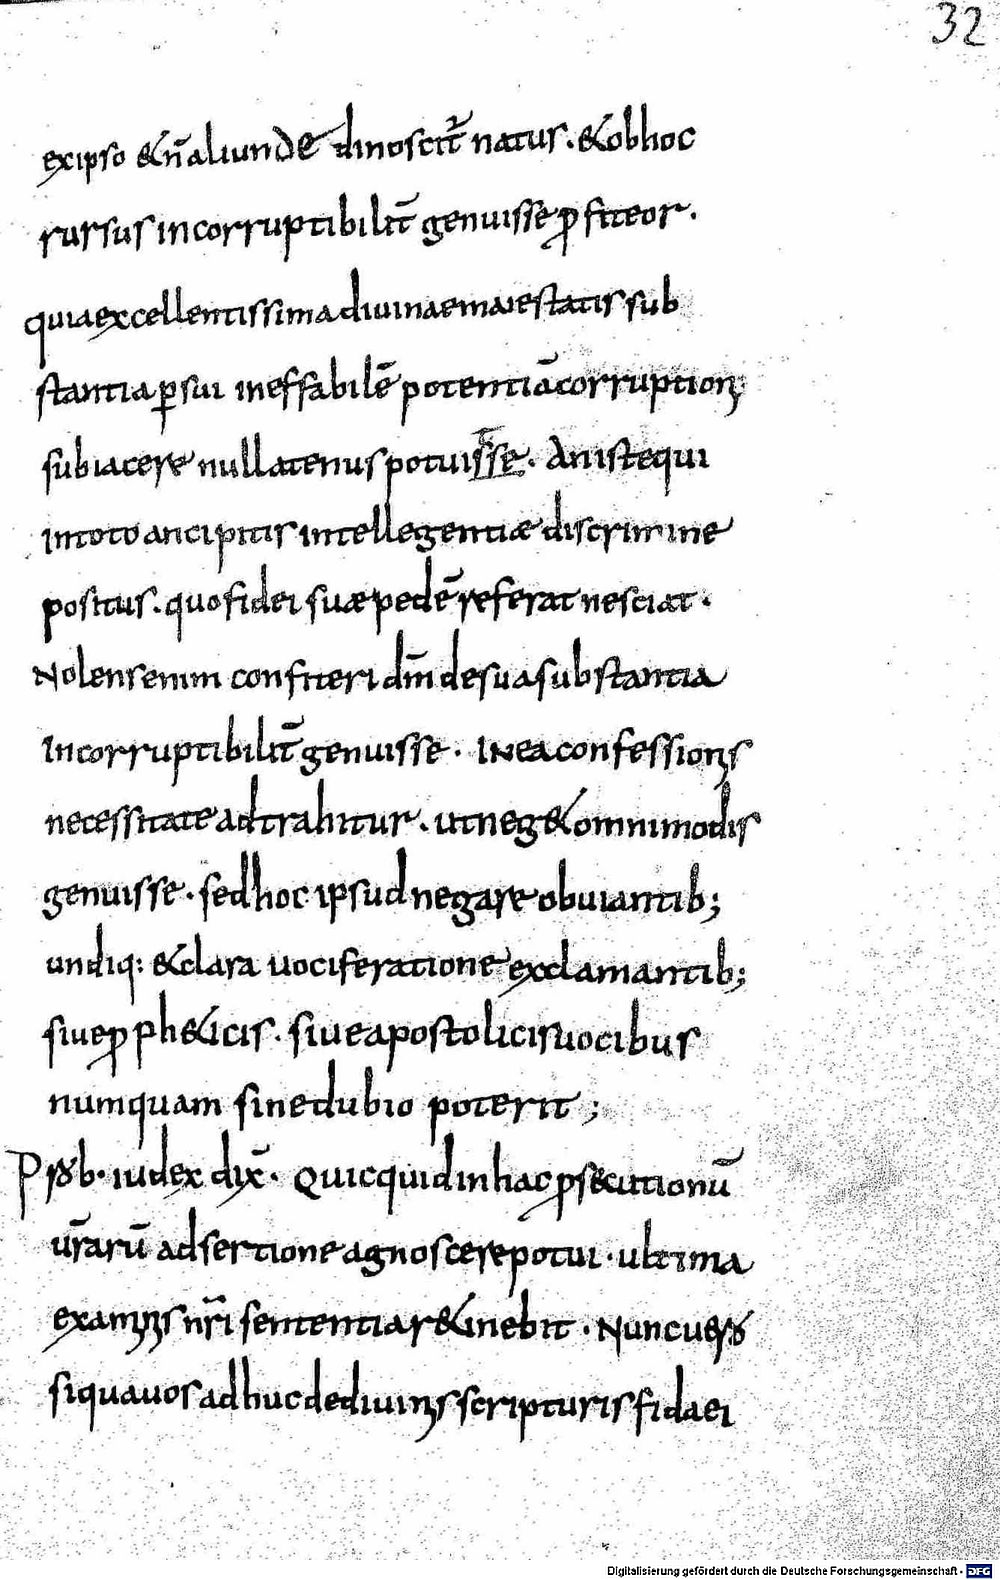 32
ex ipso & n̄ aliunde dinoscit̄ natus. & ob hoc
rursus incorruptibilit̄ genuisse ꝓfiteor.
quia excellentissima diuinae maiestatis sub
stantia ꝑ sui ineffabilē potentiā corruptioni
subiacere nullatenus potuisse. An iste qui
in toto ancipitis intellegentiæ discrimine
positus. quo fidei suæ pedē referat nesciat.
Nolens enim confiteri dm̄ de sua substantia
Incorruptibilit̄ genuisse. IN ea confessionis
necessitate adtrahitur. ut neg& omnimodis
genuisse. sed hoc ipsud negare obuiantib;
undiq: & clara uociferatione exclamantib;
siue ꝓph&icis. siue apostolicis uocibus
numquam sine dubio poterit;
Prob. iudex dix̄. Quicquid in hac ꝓsecutionū
ur̄arū adsertione agnoscere potui. ultima
examinis nr̄i sententia r&inebit. Nunc uero
si qua uos adhuc de diuinis scripturis fidaei
Digitalisierung gefördert durch die Deutsche Forschungsgemeinschaft - DFG